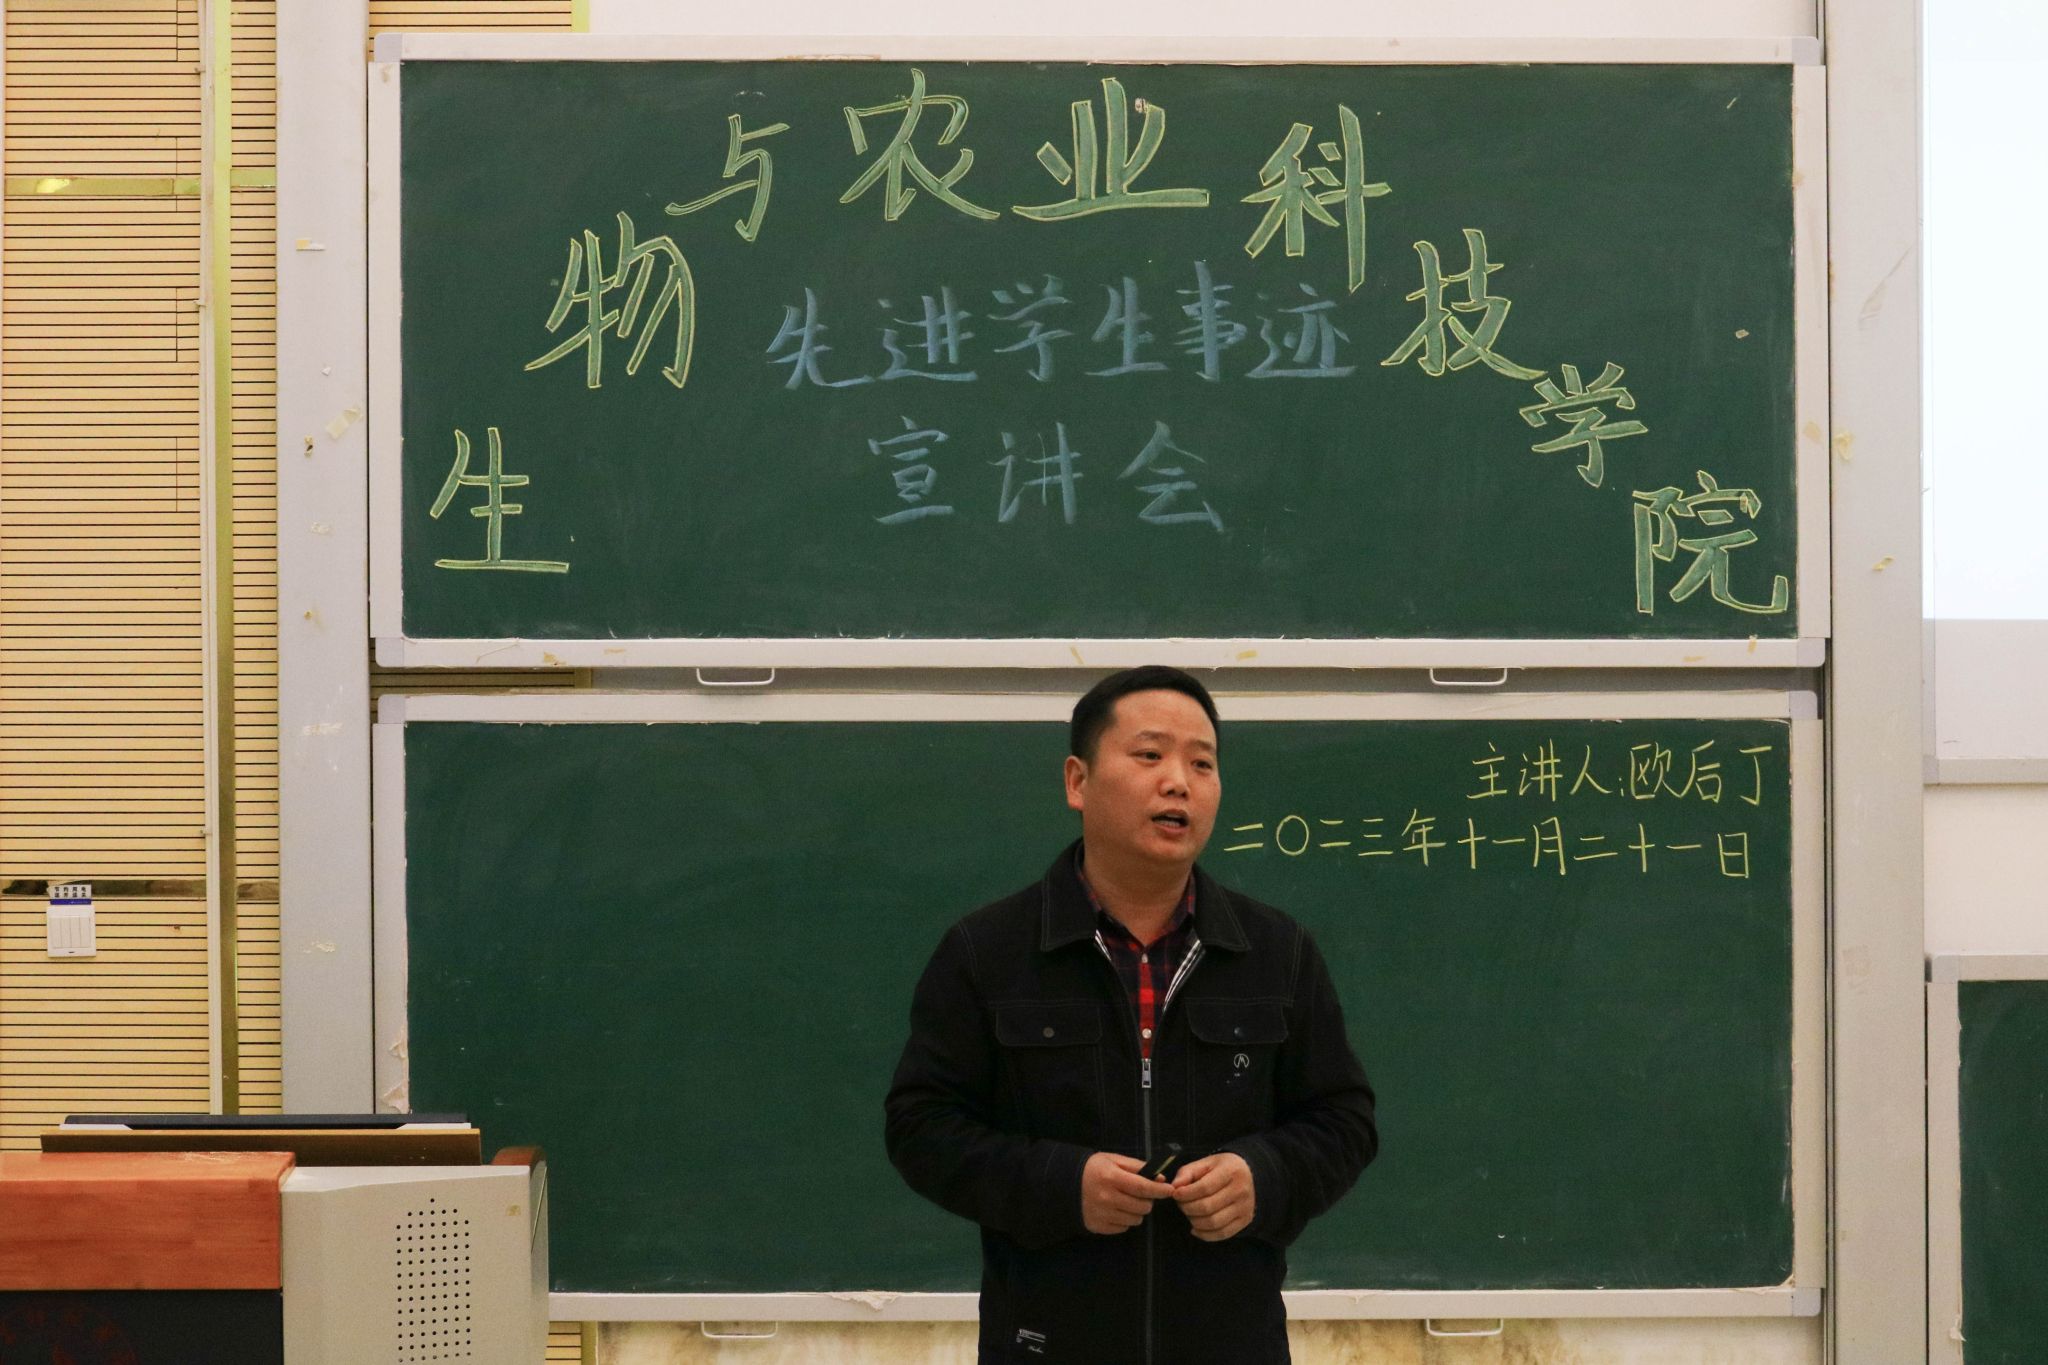 生物与农业科技学院
先进学生事迹
宣讲会
主讲人:欧后丁
二〇二三年十一月二十一日